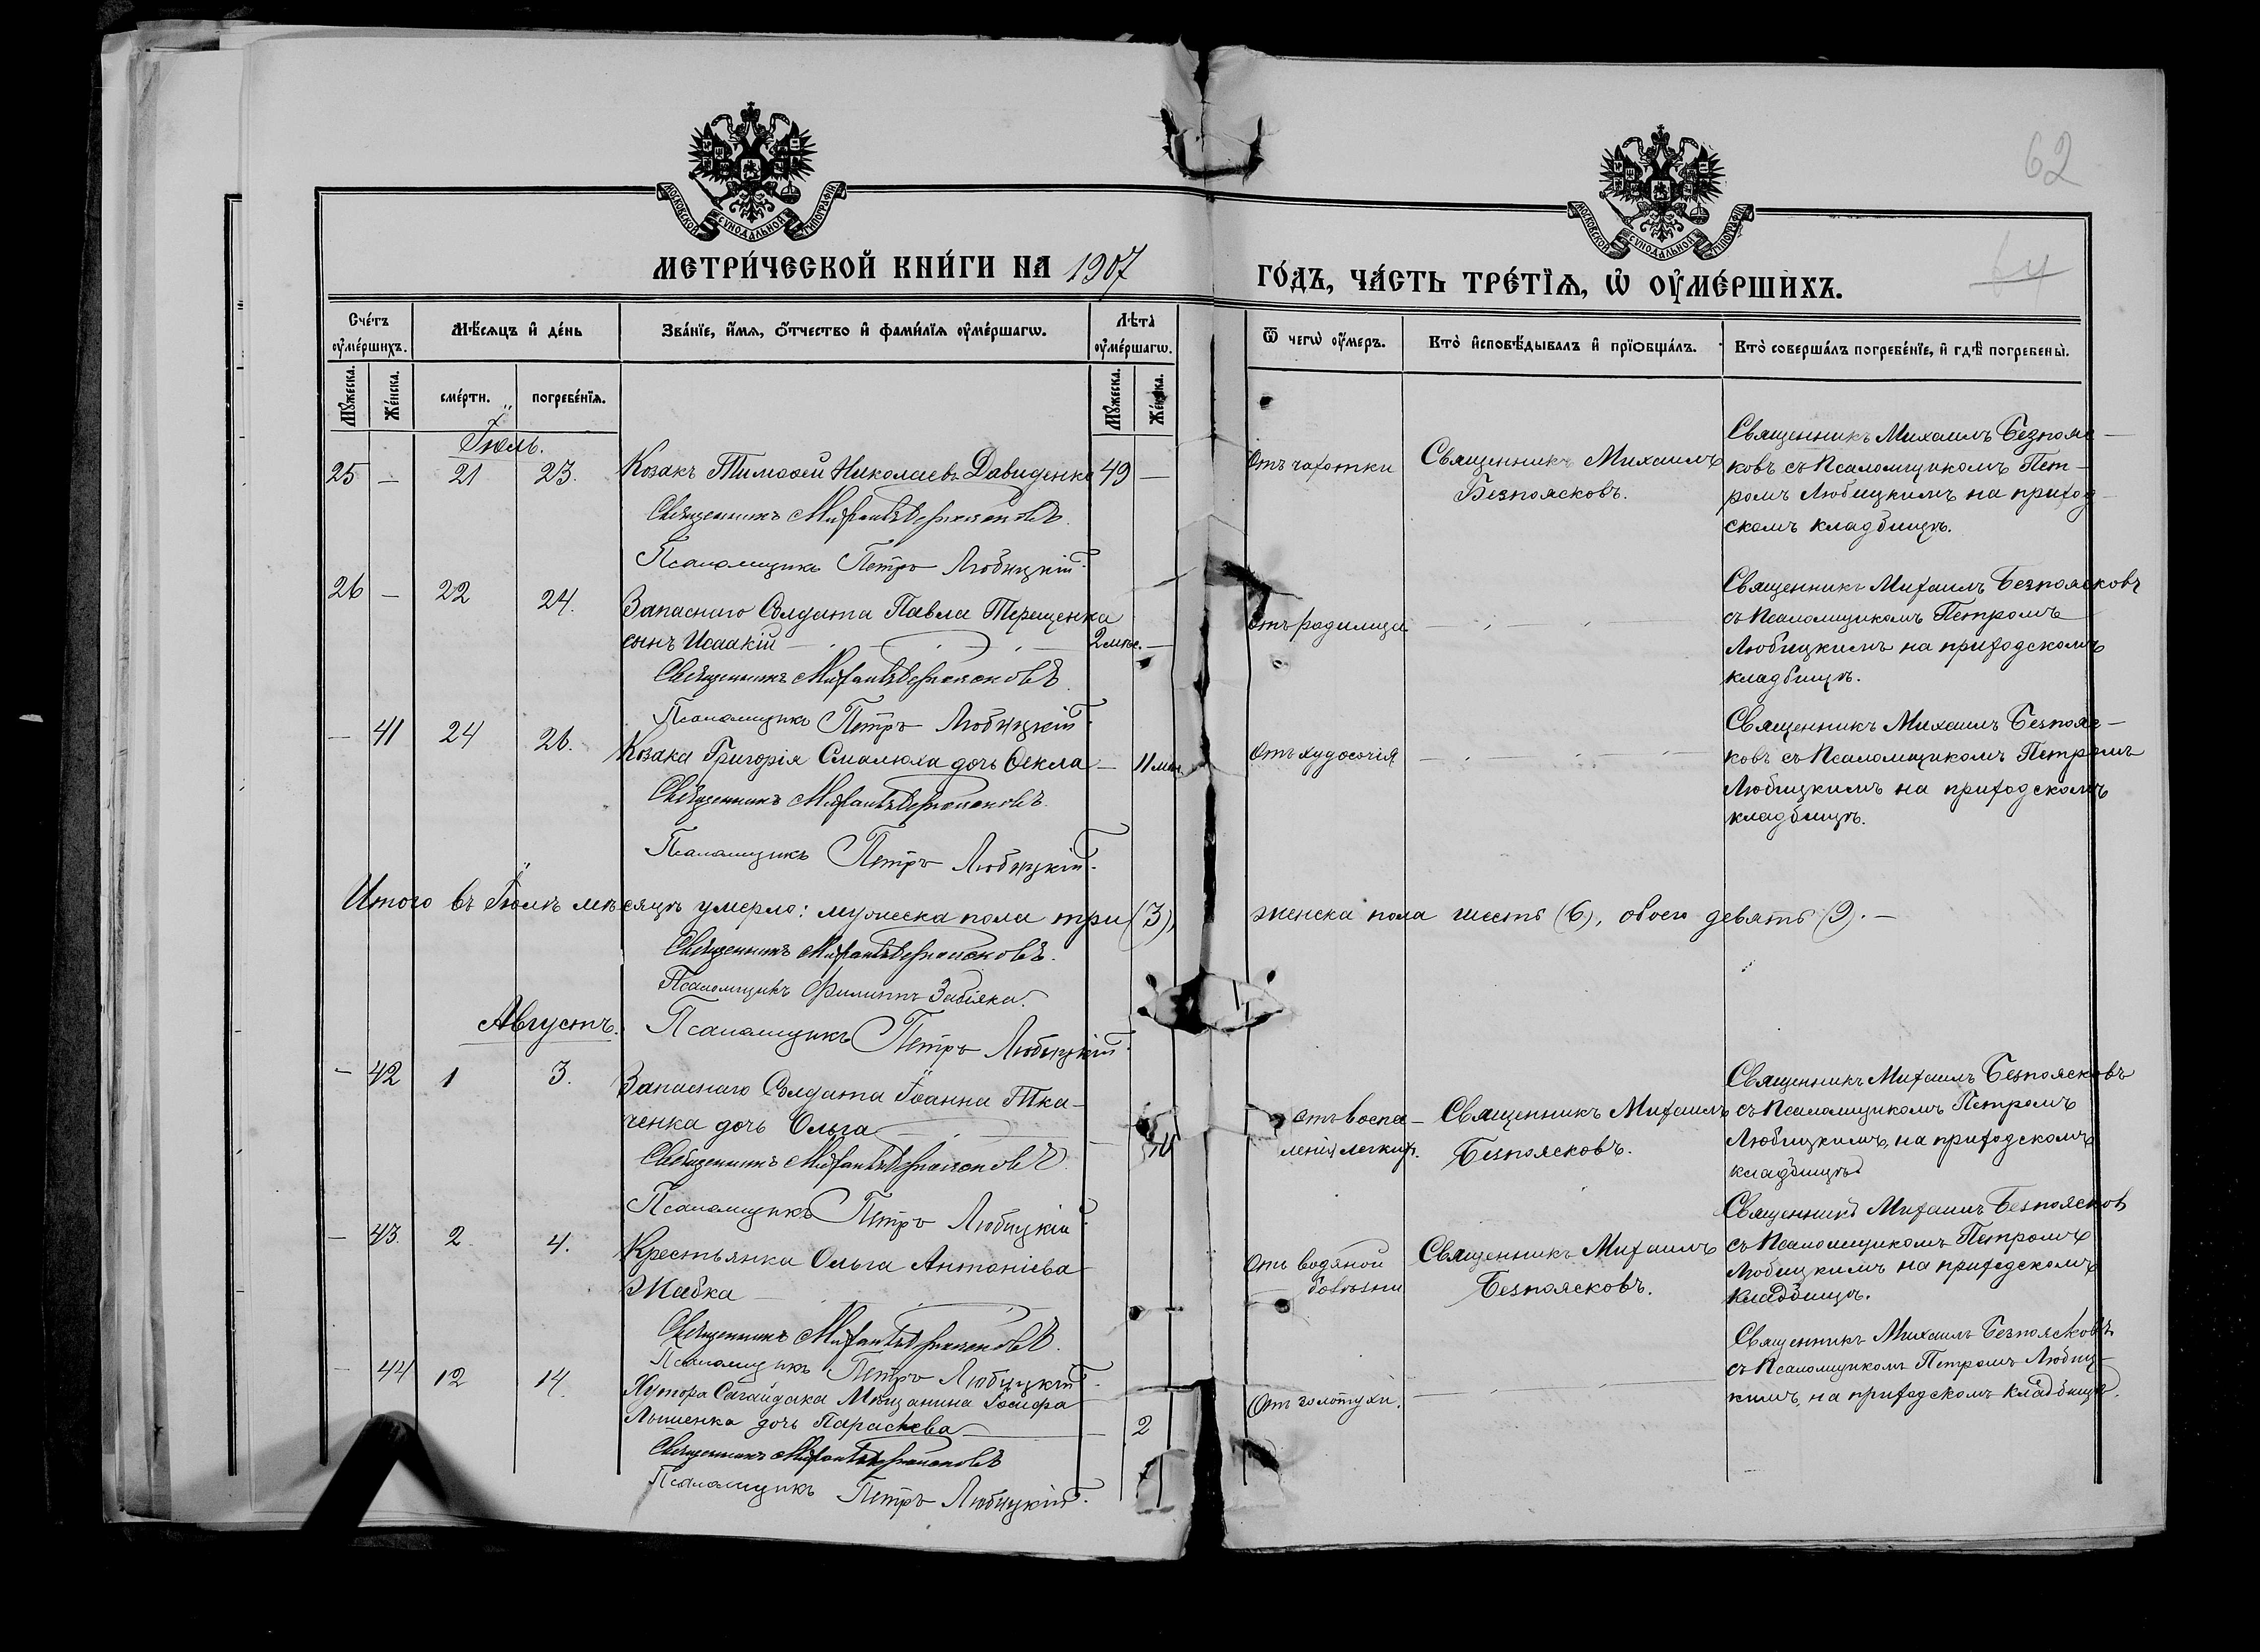 62
64
МОСКОВСКОЙ СѴНОДАЛЬНОЙ ТИПОГРАФІИ
МОСКОВСКОЙ СѴНОДАЛЬНОЙ ТИПОГРАФІИ
МЕТРИ́ЧЕСКОЙ КНИ́ГИ НА 1907
ГО́ДЪ, ЧА́СТЬ ТРЕ́ТЇѦ, Ѡ҆ ОУ҆МЕ́РШИХЪ.
Сче́тъ оу҆ме́ршихъ.
Мѣ́сяцъ и҆ де́нь
Зва́нїе, и҆́мѧ, ѻ҆́тчество и҆ фами́лїѧ оу҆ме́ршагѡ.
Лѣта̀ оу҆ме́ршагѡ.
Ѿ чегѡ̀ оу҆́меръ.
Кто̀ и҆сповѣ́дывалъ и҆ прїѡбща́лъ.
Кто̀ соверша́лъ погребе́нїе, и҆ гдѣ̀ погребены̀.
Мꙋ́жеска. Же́нска. сме́рти. погребе́нїѧ. Мꙋ́жеска. Же́нска.
Іюль.
25 — 21 23. Козакъ Тимоѳей Николаевъ Давиденко 49 —
Священникъ Михаилъ Безпоясковъ.
Псаломщикъ Петръ Любицкій.
Отъ чахотки
Священникъ Михаилъ
Безпоясковъ.
Священникъ Михаилъ Безпояс-
ковъ съ Псаломщикомъ Пет-
ромъ Любицкимъ на приход-
скомъ кладбищѣ.
26 — 22 24. Запаснаго Солдата Павла Терещенка
сынъ Исаакій — 2 мѣс. —
Священникъ Михаилъ Безпоясковъ.
Псаломщикъ Петръ Любицкій.
Отъ родимца
Священникъ Михаилъ Безпоясковъ
съ Псаломщикомъ Петромъ
Любицкимъ на приходскомъ
кладбищѣ.
— 41 24 26. Козака Григорія Смалюха дочь Ѳекла — 11 мѣс.
Священникъ Михаилъ Безпоясковъ.
Псаломщикъ Петръ Любицкій.
Отъ худосочія
Священникъ Михаилъ Безпояс-
ковъ съ Псаломщикомъ Петромъ
Любицкимъ на приходскомъ
кладбищѣ.
Итого въ Іюлѣ мѣсяцѣ умерло: мужеска пола три (3), женска пола шесть (6), обоего девять (9). —
Священникъ Михаилъ Безпоясковъ.
Псаломщикъ Филиппъ Забіяка.
Псаломщикъ Петръ Любицкій.
Августъ.
— 42 1 3. Запаснаго Солдата Іоанна Тка-
ченка дочь Ольга —
Священникъ Михаилъ Безпоясковъ.
Псаломщикъ Петръ Любицкій.
отъ воспа-
ленія легкихъ.
Священникъ Михаилъ
Безпоясковъ.
Священникъ Михаилъ Безпоясковъ
съ Псаломщикомъ Петромъ
Любицкимъ, на приходскомъ
кладбищѣ
— 43. 2. 4. Крестьянка Ольга Антоніева
Жабка —
Священникъ Михаилъ Безпоясковъ.
Псаломщикъ Петръ Любицкій.
Отъ водяной
болѣзни
Священникъ Михаилъ
Безпоясковъ.
Священникъ Михаилъ Безпоясков
съ Псаломщикомъ Петромъ
Любицкимъ на приходскомъ
кладбищѣ.
— 44 12 14. Хутора Сагайдака Мѣщанина Іосифа
дочь Параскева — 2
Священникъ Михаилъ Безпоясковъ
Псаломщикъ Петръ Любицкій.
Отъ золотухи.
Священникъ Михаилъ Безпоясковъ
съ Псаломщикомъ Петромъ Любиц-
кимъ, на приходскомъ кладбищѣ.